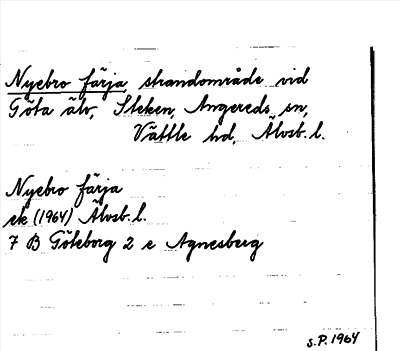 Nyebro färja, strandområde vid
Göta älv, Steken, Angereds sn,
Vättle hd, Älvsb. l.
Nyebro färja
ek (1964) Älvsb. l.
7 B Göteborg 2 e Agnesberg
s.P. 1964